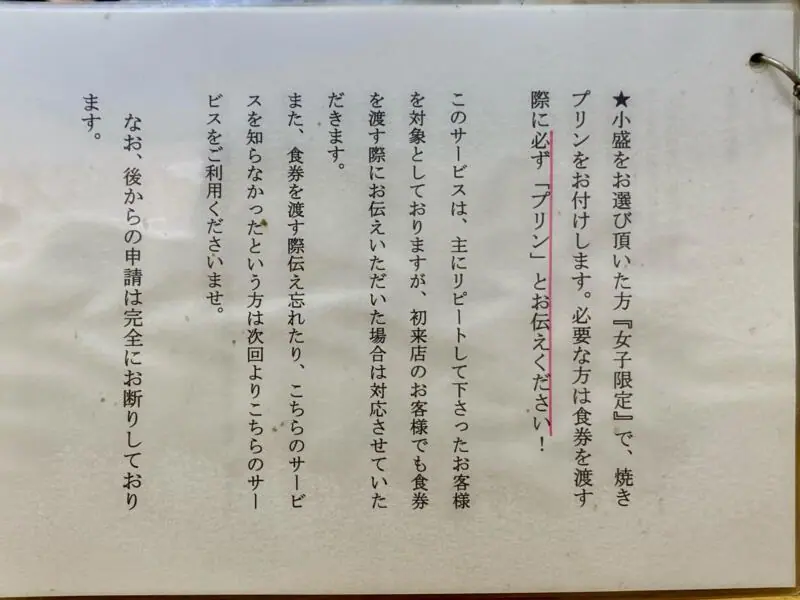 ★小盛をお選び頂いた方『女子限定』で、焼き
プリンをお付けします。必要な方は食券を渡す
際に必ず「プリン」とお伝えください！
このサービスは、主にリピートして下さったお客様
を対象としておりますが、初来店のお客様でも食券
を渡す際にお伝えいただいた場合は対応させていた
だきます。
また、食券を渡す際伝え忘れたり、こちらのサービ
スを知らなかったという方は次回よりこちらのサー
ビスをご利用くださいませ。
なお、後からの申請は完全にお断りしており
ます。